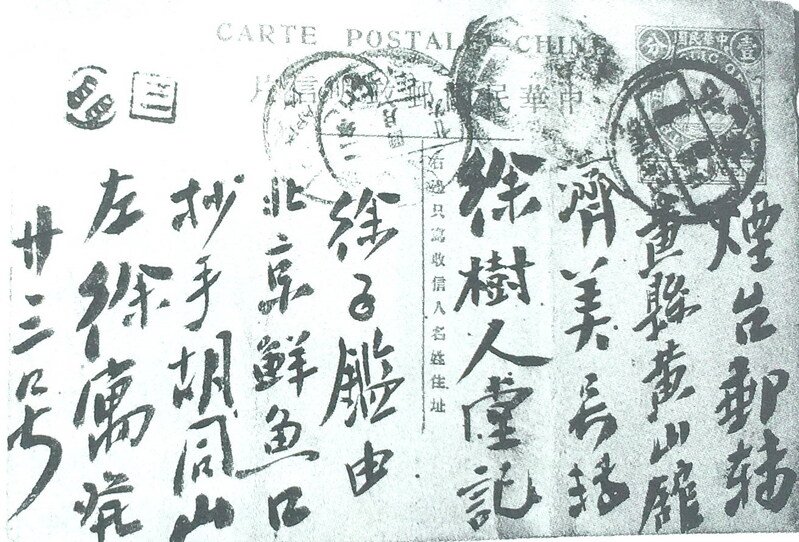 CARTE POSTALE CHINE
中華民國郵政明信片
中華民國
壹
分
右邊只寫收信人名姓住址
煙台郵轉
黃縣黃山館
濟美長轉
徐樹人堂記
徐子鑑由
北京鮮魚口
抄手胡同山
左徐寓疏
廿三号